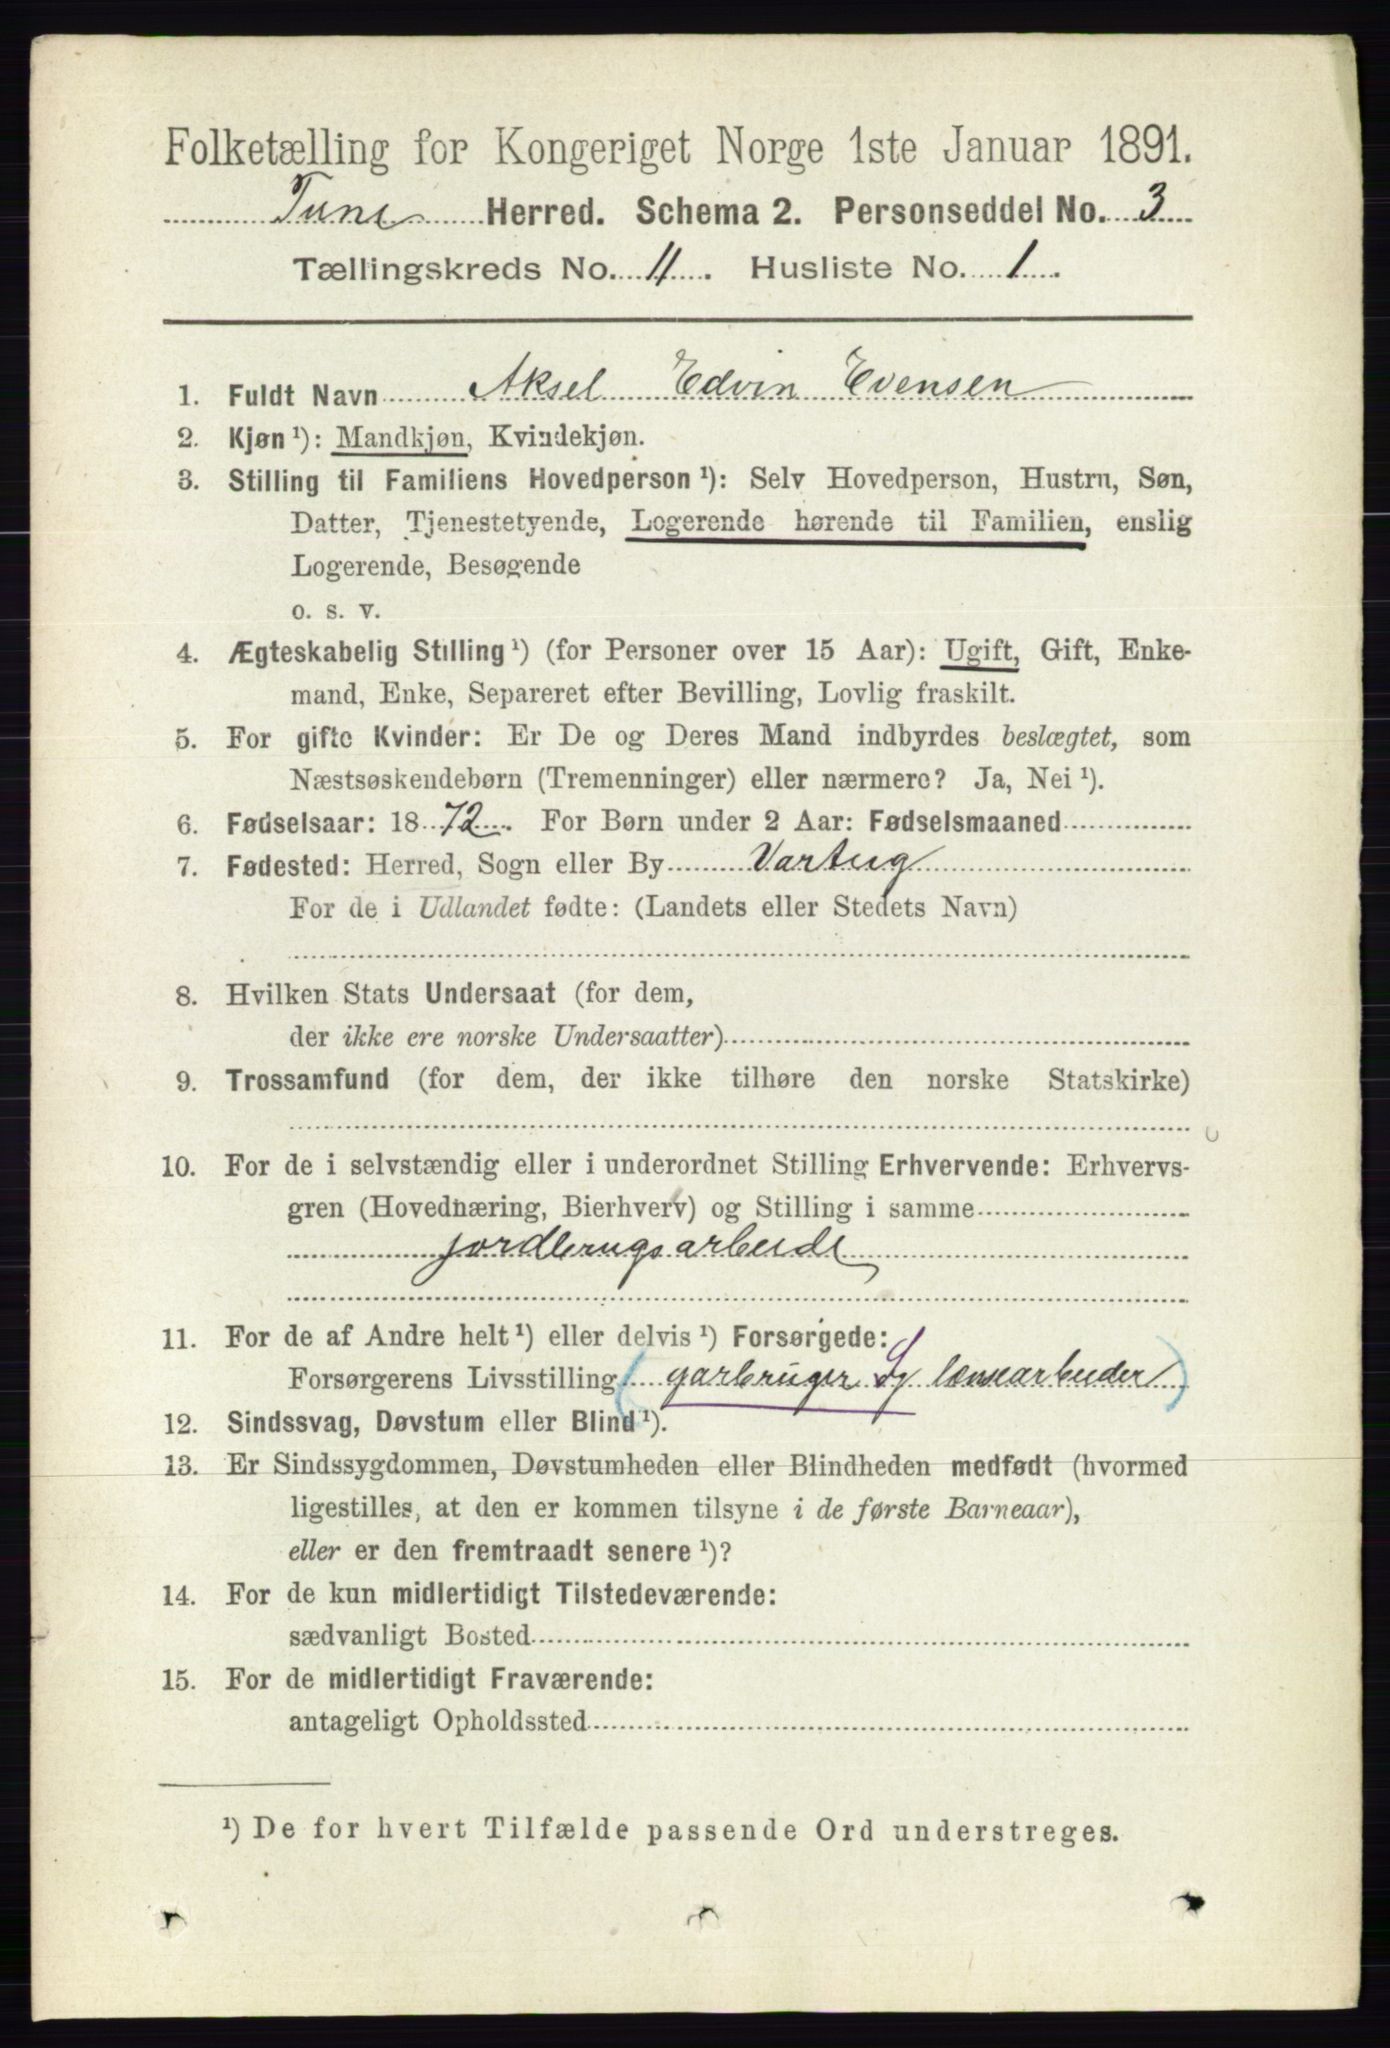 Folketælling for Kongeriget Norge 1ste Januar 1891.
Tune Herred. Schema 2. Personseddel No. 3
Tællingskreds No. 11. Husliste No. 1.
1. Fuldt Navn Aksel Edvin Evensen
2. Kjøn ¹): Mandkjøn, Kvindekjøn.
3. Stilling til Familiens Hovedperson ¹): Selv Hovedperson, Hustru, Søn,
Datter, Tjenestetyende, Logerende hørende til Familien, enslig
Logerende, Besøgende
o. s. v.
4. Ægteskabelig Stilling ¹) (for Personer over 15 Aar): Ugift, Gift, Enke-
mand, Enke, Separeret efter Bevilling, Lovlig fraskilt.
5. For gifte Kvinder: Er De og Deres Mand indbyrdes beslægtet, som
Næstsøskendebørn (Tremenninger) eller nærmere? Ja, Nei ¹).
6. Fødselsaar: 1872. For Børn under 2 Aar: Fødselsmaaned
7. Fødested: Herred, Sogn eller By Varteig
For de i Udlandet fødte: (Landets eller Stedets Navn)
8. Hvilken Stats Undersaat (for dem,
der ikke ere norske Undersaatter)
9. Trossamfund (for dem, der ikke tilhøre den norske Statskirke)
10. For de i selvstændig eller i underordnet Stilling Erhvervende: Erhvervs-
gren (Hovednæring, Bierhverv) og Stilling i samme
jordbrugsarbeide
11. For de af Andre helt ¹) eller delvis ¹) Forsørgede:
Forsørgerens Livsstilling (garbruger og lænsearbeider)
12. Sindssvag, Døvstum eller Blind ¹).
13. Er Sindssygdommen, Døvstumheden eller Blindheden medfødt (hvormed
ligestilles, at den er kommen tilsyne i de første Barneaar),
eller er den fremtraadt senere ¹)?
14. For de kun midlertidigt Tilstedeværende:
sædvanligt Bosted
15. For de midlertidigt Fraværende:
antageligt Opholdssted
¹) De for hvert Tilfælde passende Ord understreges.